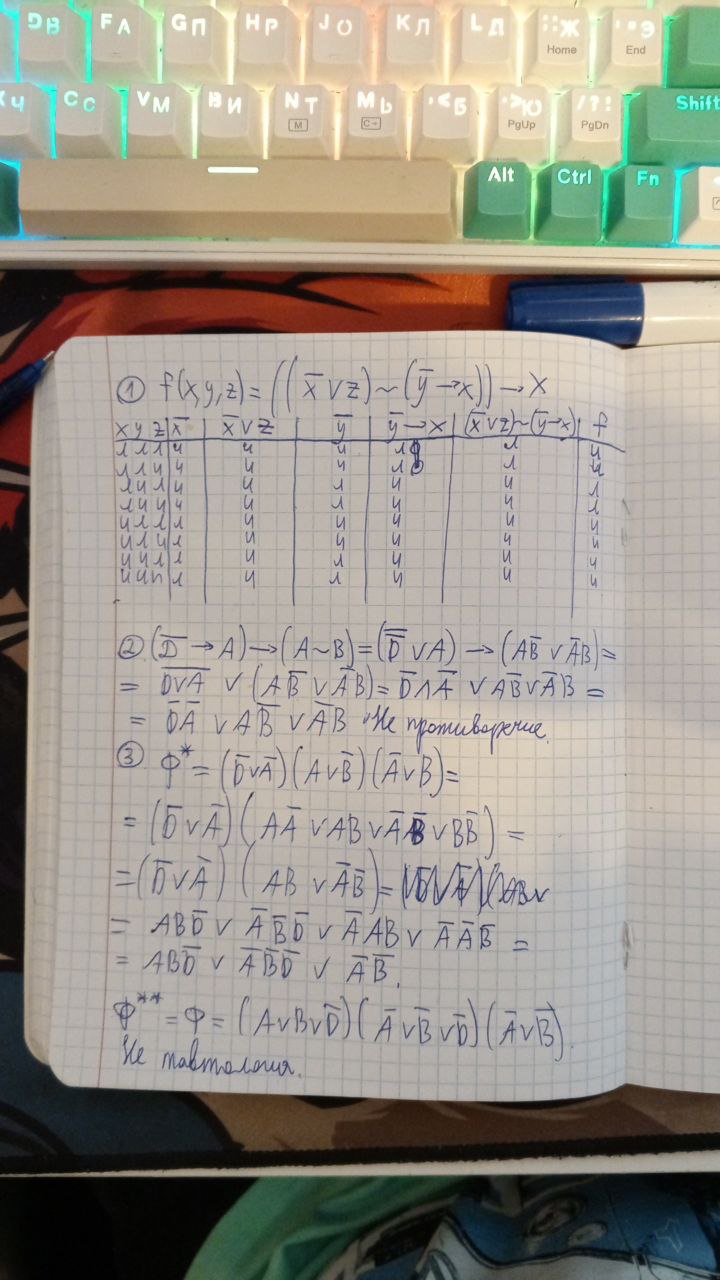 D В F А G П H Р J О К Л L Д : ; Ж Home " ' Э End
Ч C С V М B И N Т M M Ь C- , < Б . > Ю PgUp / ? ! PgDn Shift
Alt Ctrl Fn
① f(x,y,z) = ((x̅ ∨ z) ~ (y̅ → x)) → x
x y z | x̅ | x̅ ∨ z | y̅ | y̅ → x | (x̅ ∨ z) ~ (y̅ → x) | f
л л л | и | и | и | л | л | и
л л и | и | и | и | л | л | и
л и л | и | и | л | и | и | л
л и и | и | и | л | и | и | л
и л л | л | и | и | и | и | и
и л и | л | и | и | и | и | и
и и л | л | и | л | и | и | и
и и и | л | и | л | и | и | и
② (D̅ → A) → (A ~ B) = (D̿ ∨ A) → (AB̅ ∨ A̅B) =
= \overline{D ∨ A} ∨ (AB̅ ∨ A̅B) = D̅ ∧ A̅ ∨ AB̅ ∨ A̅B =
= D̅A̅ ∨ AB̅ ∨ A̅B Не противоречие.
③ Ф* = (D̅ ∨ A̅)(A ∨ B̅)(A̅ ∨ B) =
= (D̅ ∨ A̅)(AA̅ ∨ AB ∨ A̅B̅ ∨ BB̅) =
= (D̅ ∨ A̅)(AB ∨ A̅B̅) =
= ABD̅ ∨ A̅B̅D̅ ∨ A̅AB ∨ A̅A̅B̅ =
= ABD̅ ∨ A̅B̅D̅ ∨ A̅B̅.
Ф** = Ф = (A ∨ B ∨ D̅)(A̅ ∨ B̅ ∨ D̅)(A̅ ∨ B̅).
Не тавтология.